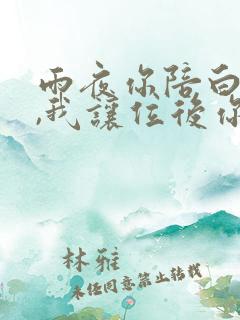 雨夜你陪白
,我讓位後你
林雅
未任同意禁止转载